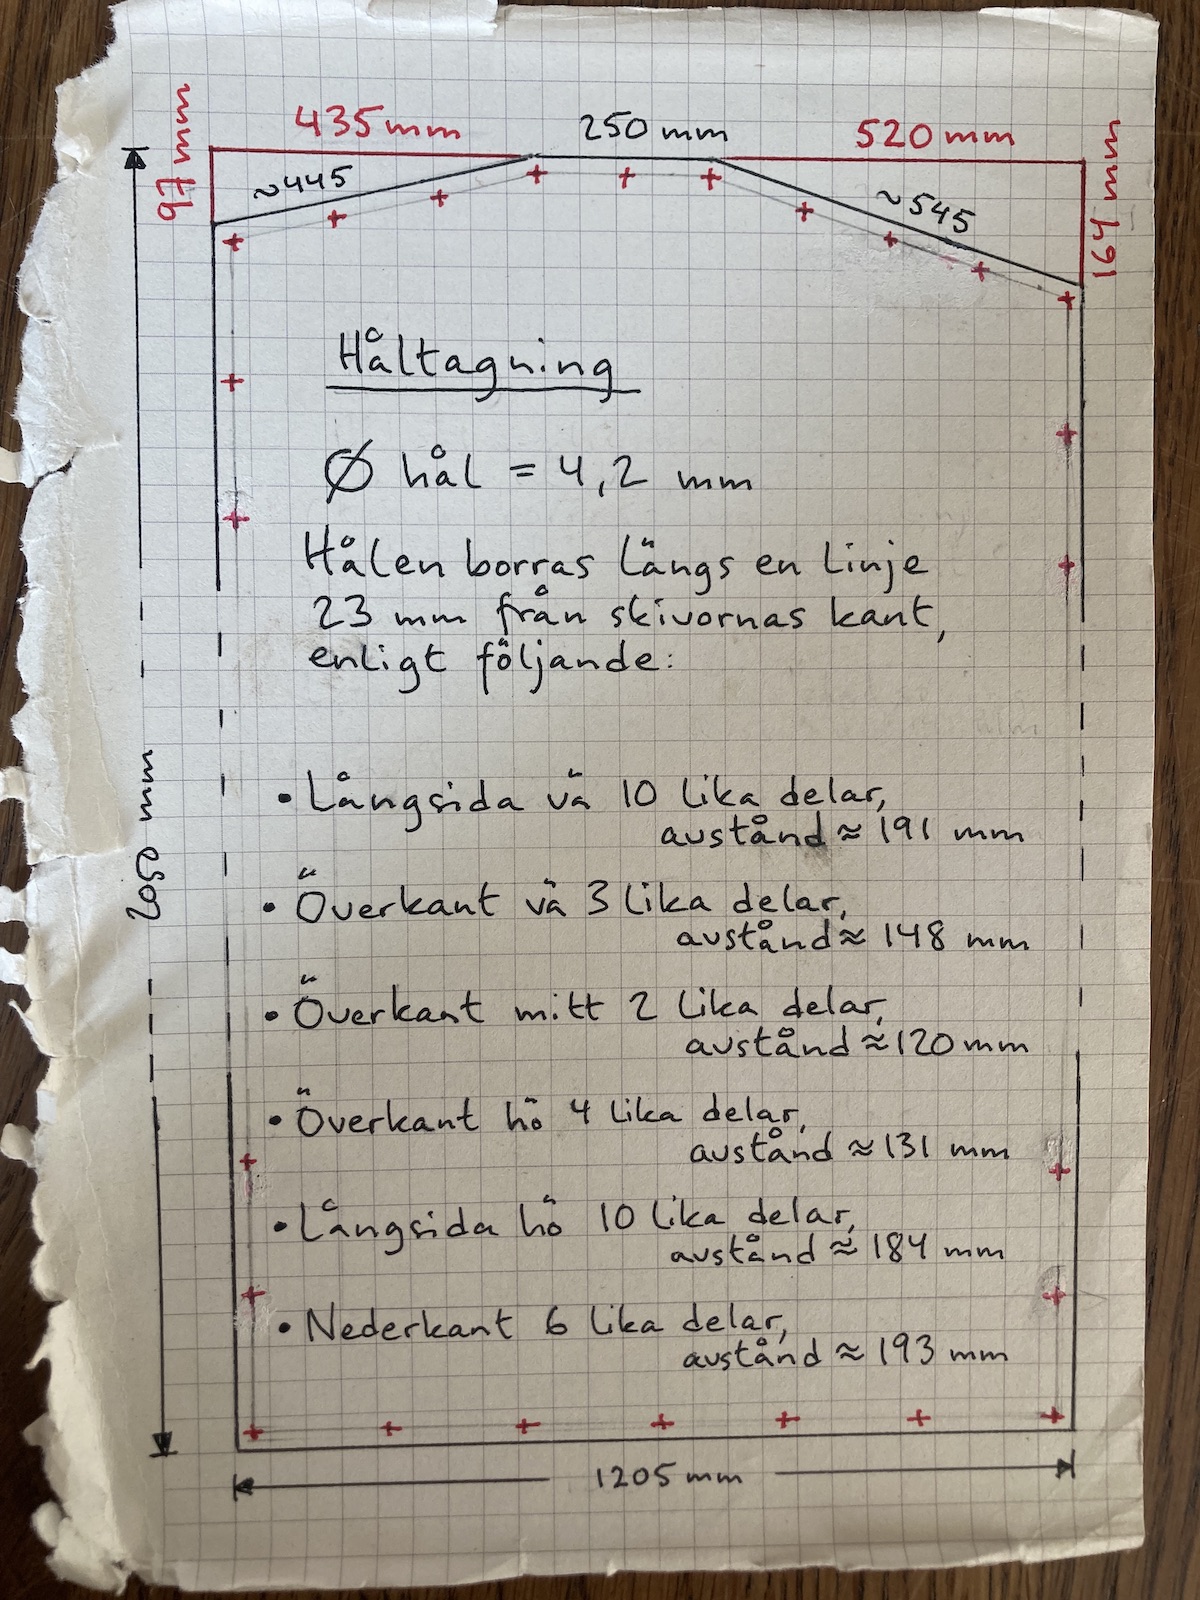 435mm
250 mm
520mm
97 mm
~445
~545
164 mm
Håltagning
Ø hål = 4,2 mm
Hålen borras längs en linje
23 mm från skivornas kant,
enligt följande:
2050 mm
• Långsida vä 10 lika delar,
avstånd ≈ 191 mm
• Överkant vä 3 lika delar,
avstånd ≈ 148 mm
• Överkant mitt 2 lika delar,
avstånd ≈ 120 mm
• Överkant hö 4 lika delar,
avstånd ≈ 131 mm
• Långsida hö 10 lika delar,
avstånd ≈ 184 mm
• Nederkant 6 lika delar,
avstånd ≈ 193 mm
1205 mm